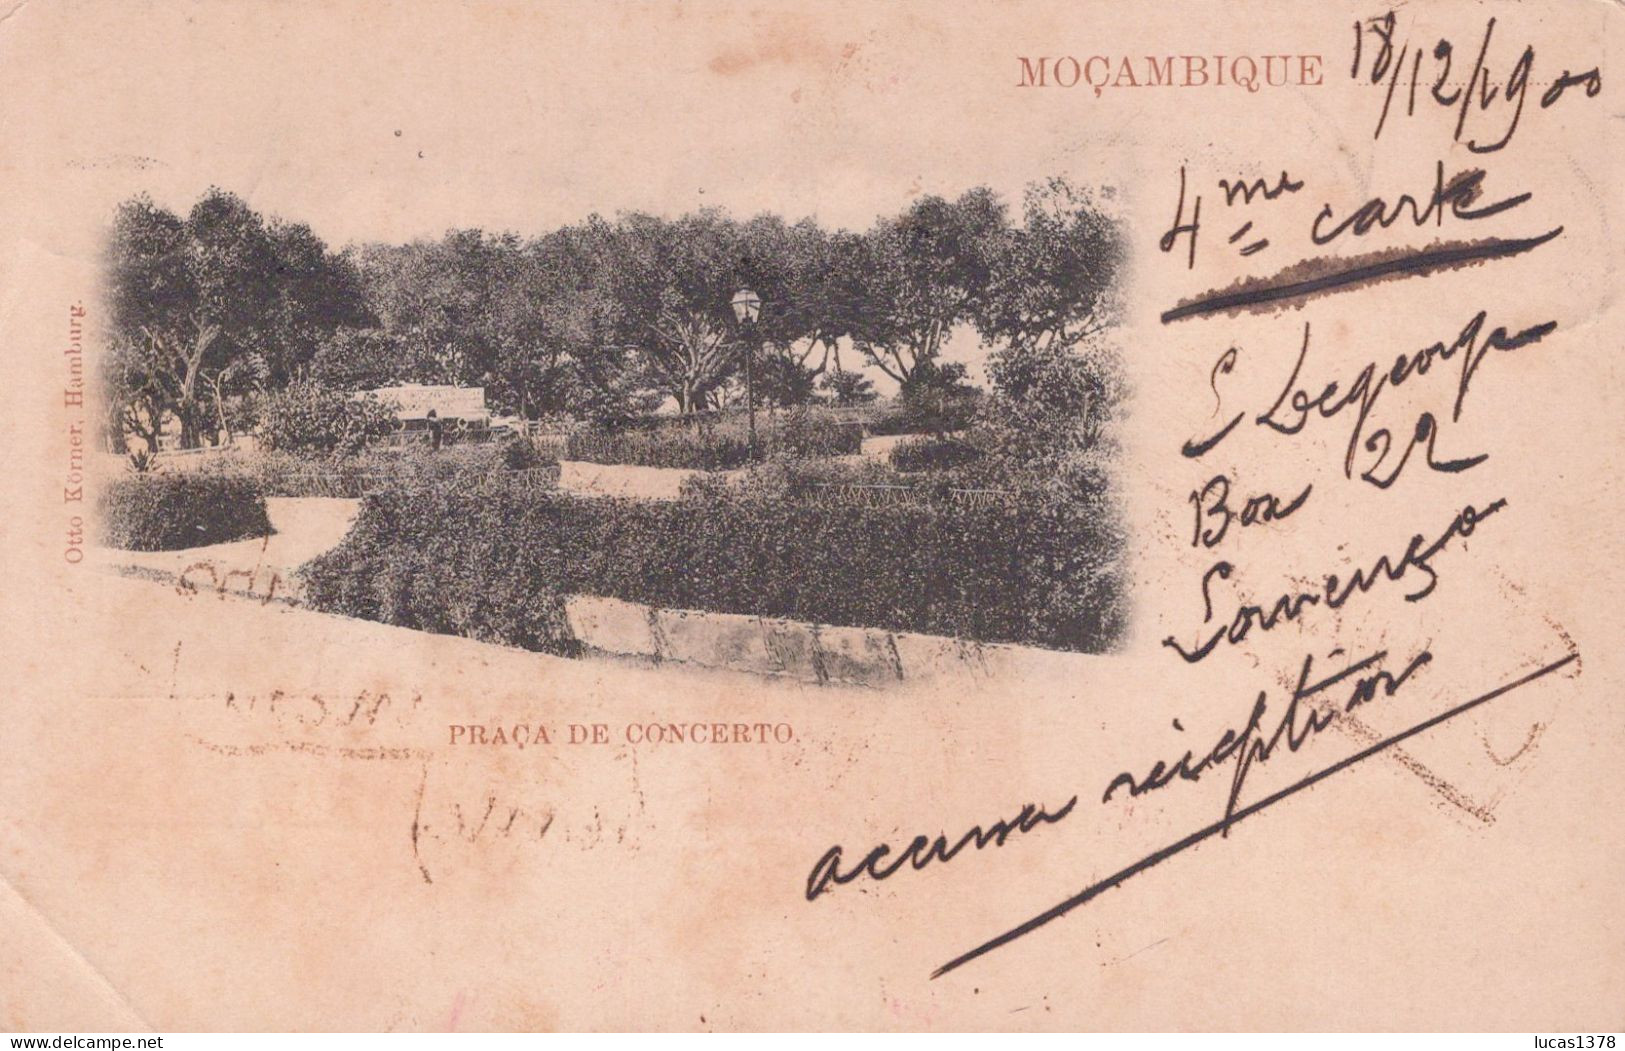 MOÇAMBIQUE 18/12/1900
4me = carte
E Degeorge
Box 22
Lourenço
accusez réception
Otto Körner, Hamburg.
PRAÇA DE CONCERTO.
delcampe.net
lucas1378